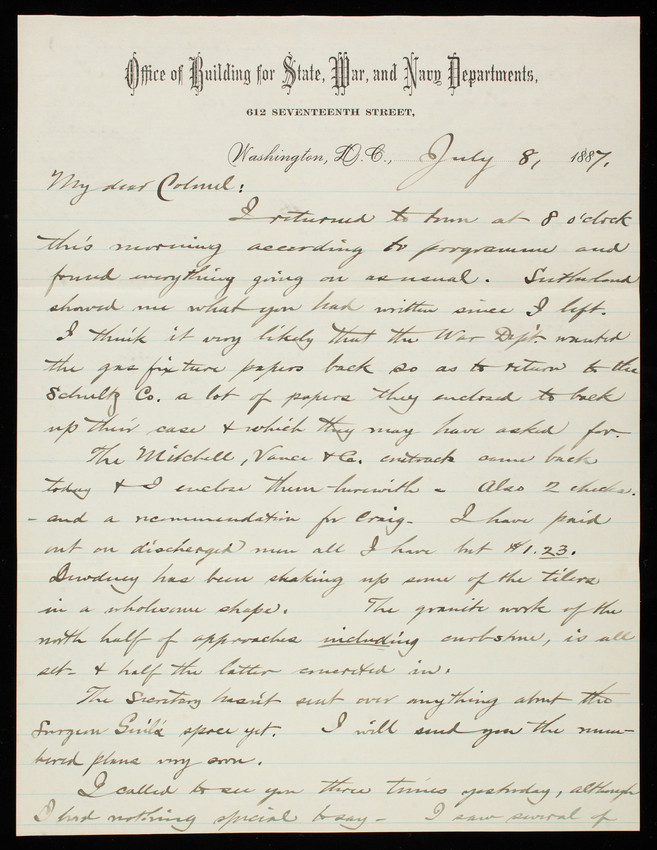 Office of Building for State, War, and Navy Departments,
612 SEVENTEENTH STREET,
Washington, D.C., July 8, 1887.
My dear Colonel:
I returned to town at 8 o'clock
this morning according to programme and
found everything going on as usual. Sutherland
showed me what you had written since I left.
I think it very likely that the War Dep't wanted
the gas fixture papers back so as to return to the
Schultz Co. a lot of papers they enclosed to back
up their case & which they may have asked for.
The Mitchell, Vance & Co. contracts came back
today & I enclose them herewith - Also 2 checks.
- and a recommendation for Craig - I have paid
out on discharged men all I have but $1.23.
Dewdney has been shaking up some of the tilers
in a wholesome shape. The granite work of the
north half of approaches including curbstone, is all
set - & half the latter concreted in.
The Secretary hasn't sent over anything about the
Surgeon Gen'l's space yet. I will send you the num-
bered plans very soon.
I called to see you three times yesterday, although
I had nothing special to say - I saw several of